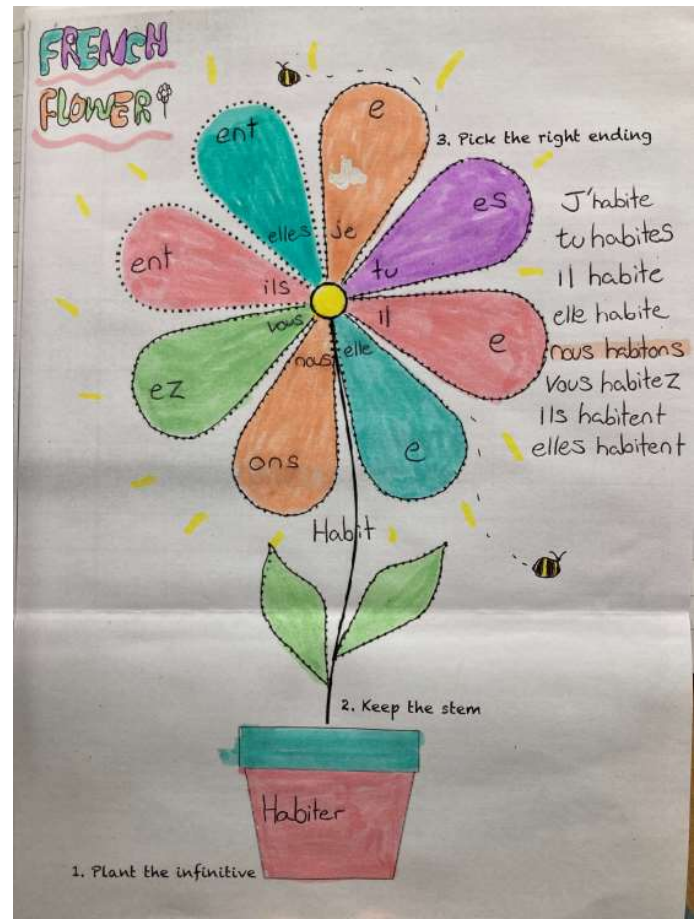 FRENCH
FLOWER
3. Pick the right ending
e
je
es
tu
e
il
e
elle
ons
nous
ez
vous
ent
ils
ent
elles
J'habite
tu habites
il habite
elle habite
nous habitons
Vous habitez
Ils habitent
elles habitent
Habit
2. Keep the stem
Habiter
1. Plant the infinitive